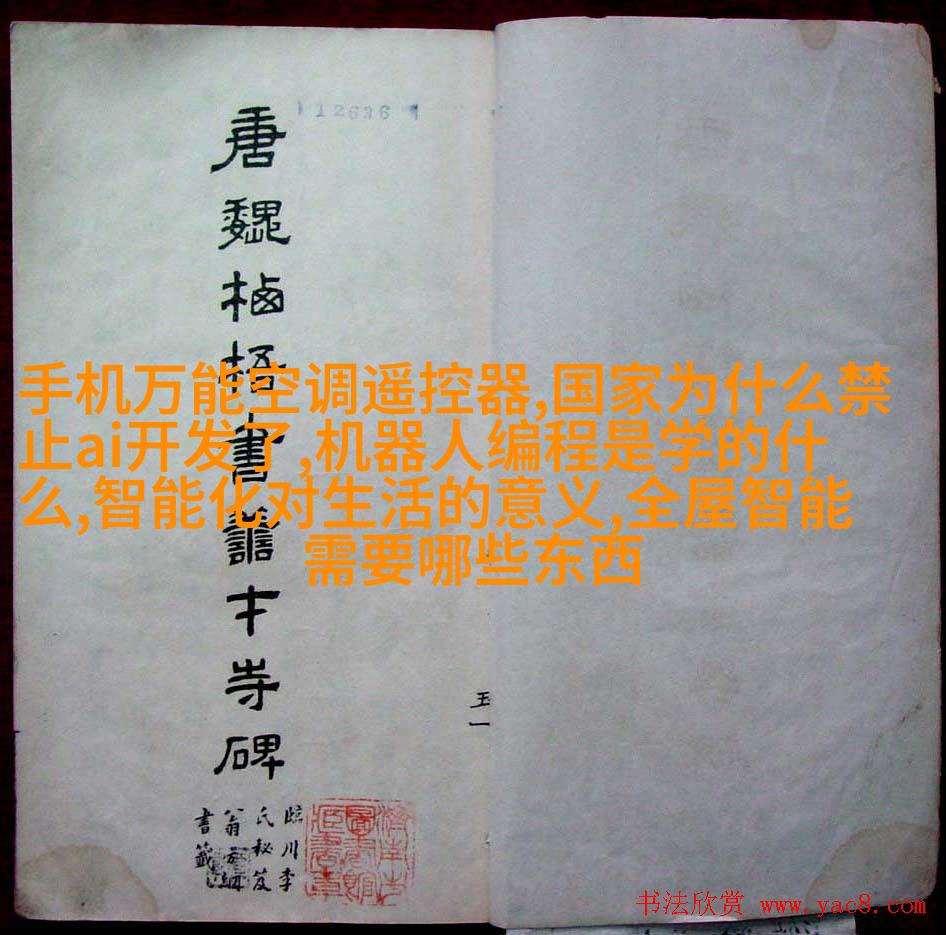 12636
唐魏栖梧書善才寺碑
臨川李
氏秘笈
翁方綱
書籤
手机万能空调遥控器,国家为什么禁
止ai开发了,机器人编程是学的什
么,智能化对生活的意义,全屋智能
需要哪些东西
书法欣赏 www.yac8.com